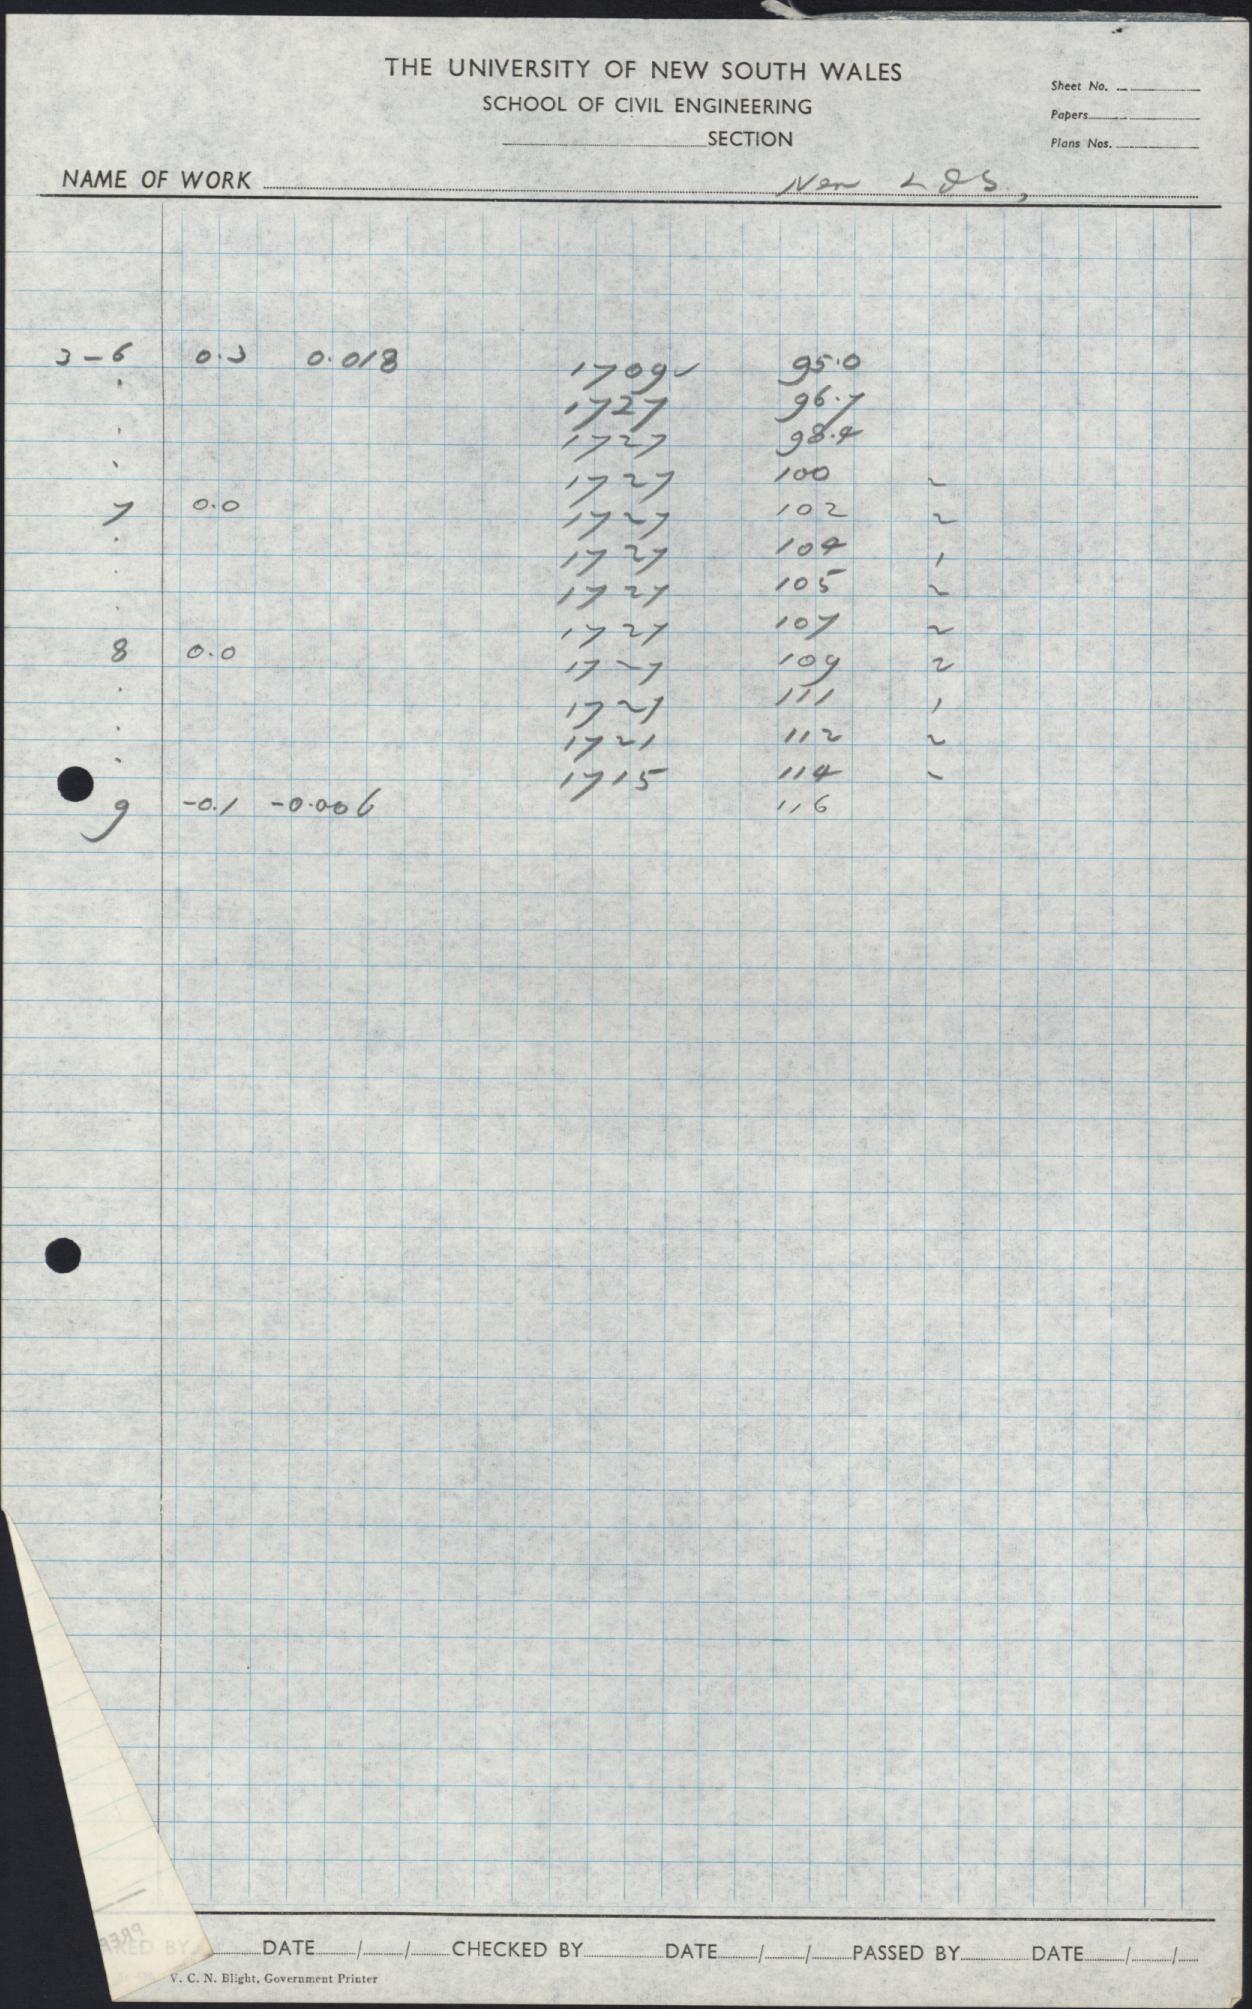 THE UNIVERSITY OF NEW SOUTH WALES
SCHOOL OF CIVIL ENGINEERING
SECTION
Sheet No.
Papers
Plans Nos.
NAME OF WORK New
3-6 0.3 0.018 1709✓ 95.0
1727 96.7
1727 98.4
1727 100 2
7 0.0 1727 102 2
1727 104 1
1727 105 2
1727 107 2
8 0.0 1727 109 2
1721 111 1
1721 112 2
1715 114 2
9 -0.1 -0.006 116
DATE / / CHECKED BY DATE / / PASSED BY DATE / /
V. C. N. Blight, Government Printer